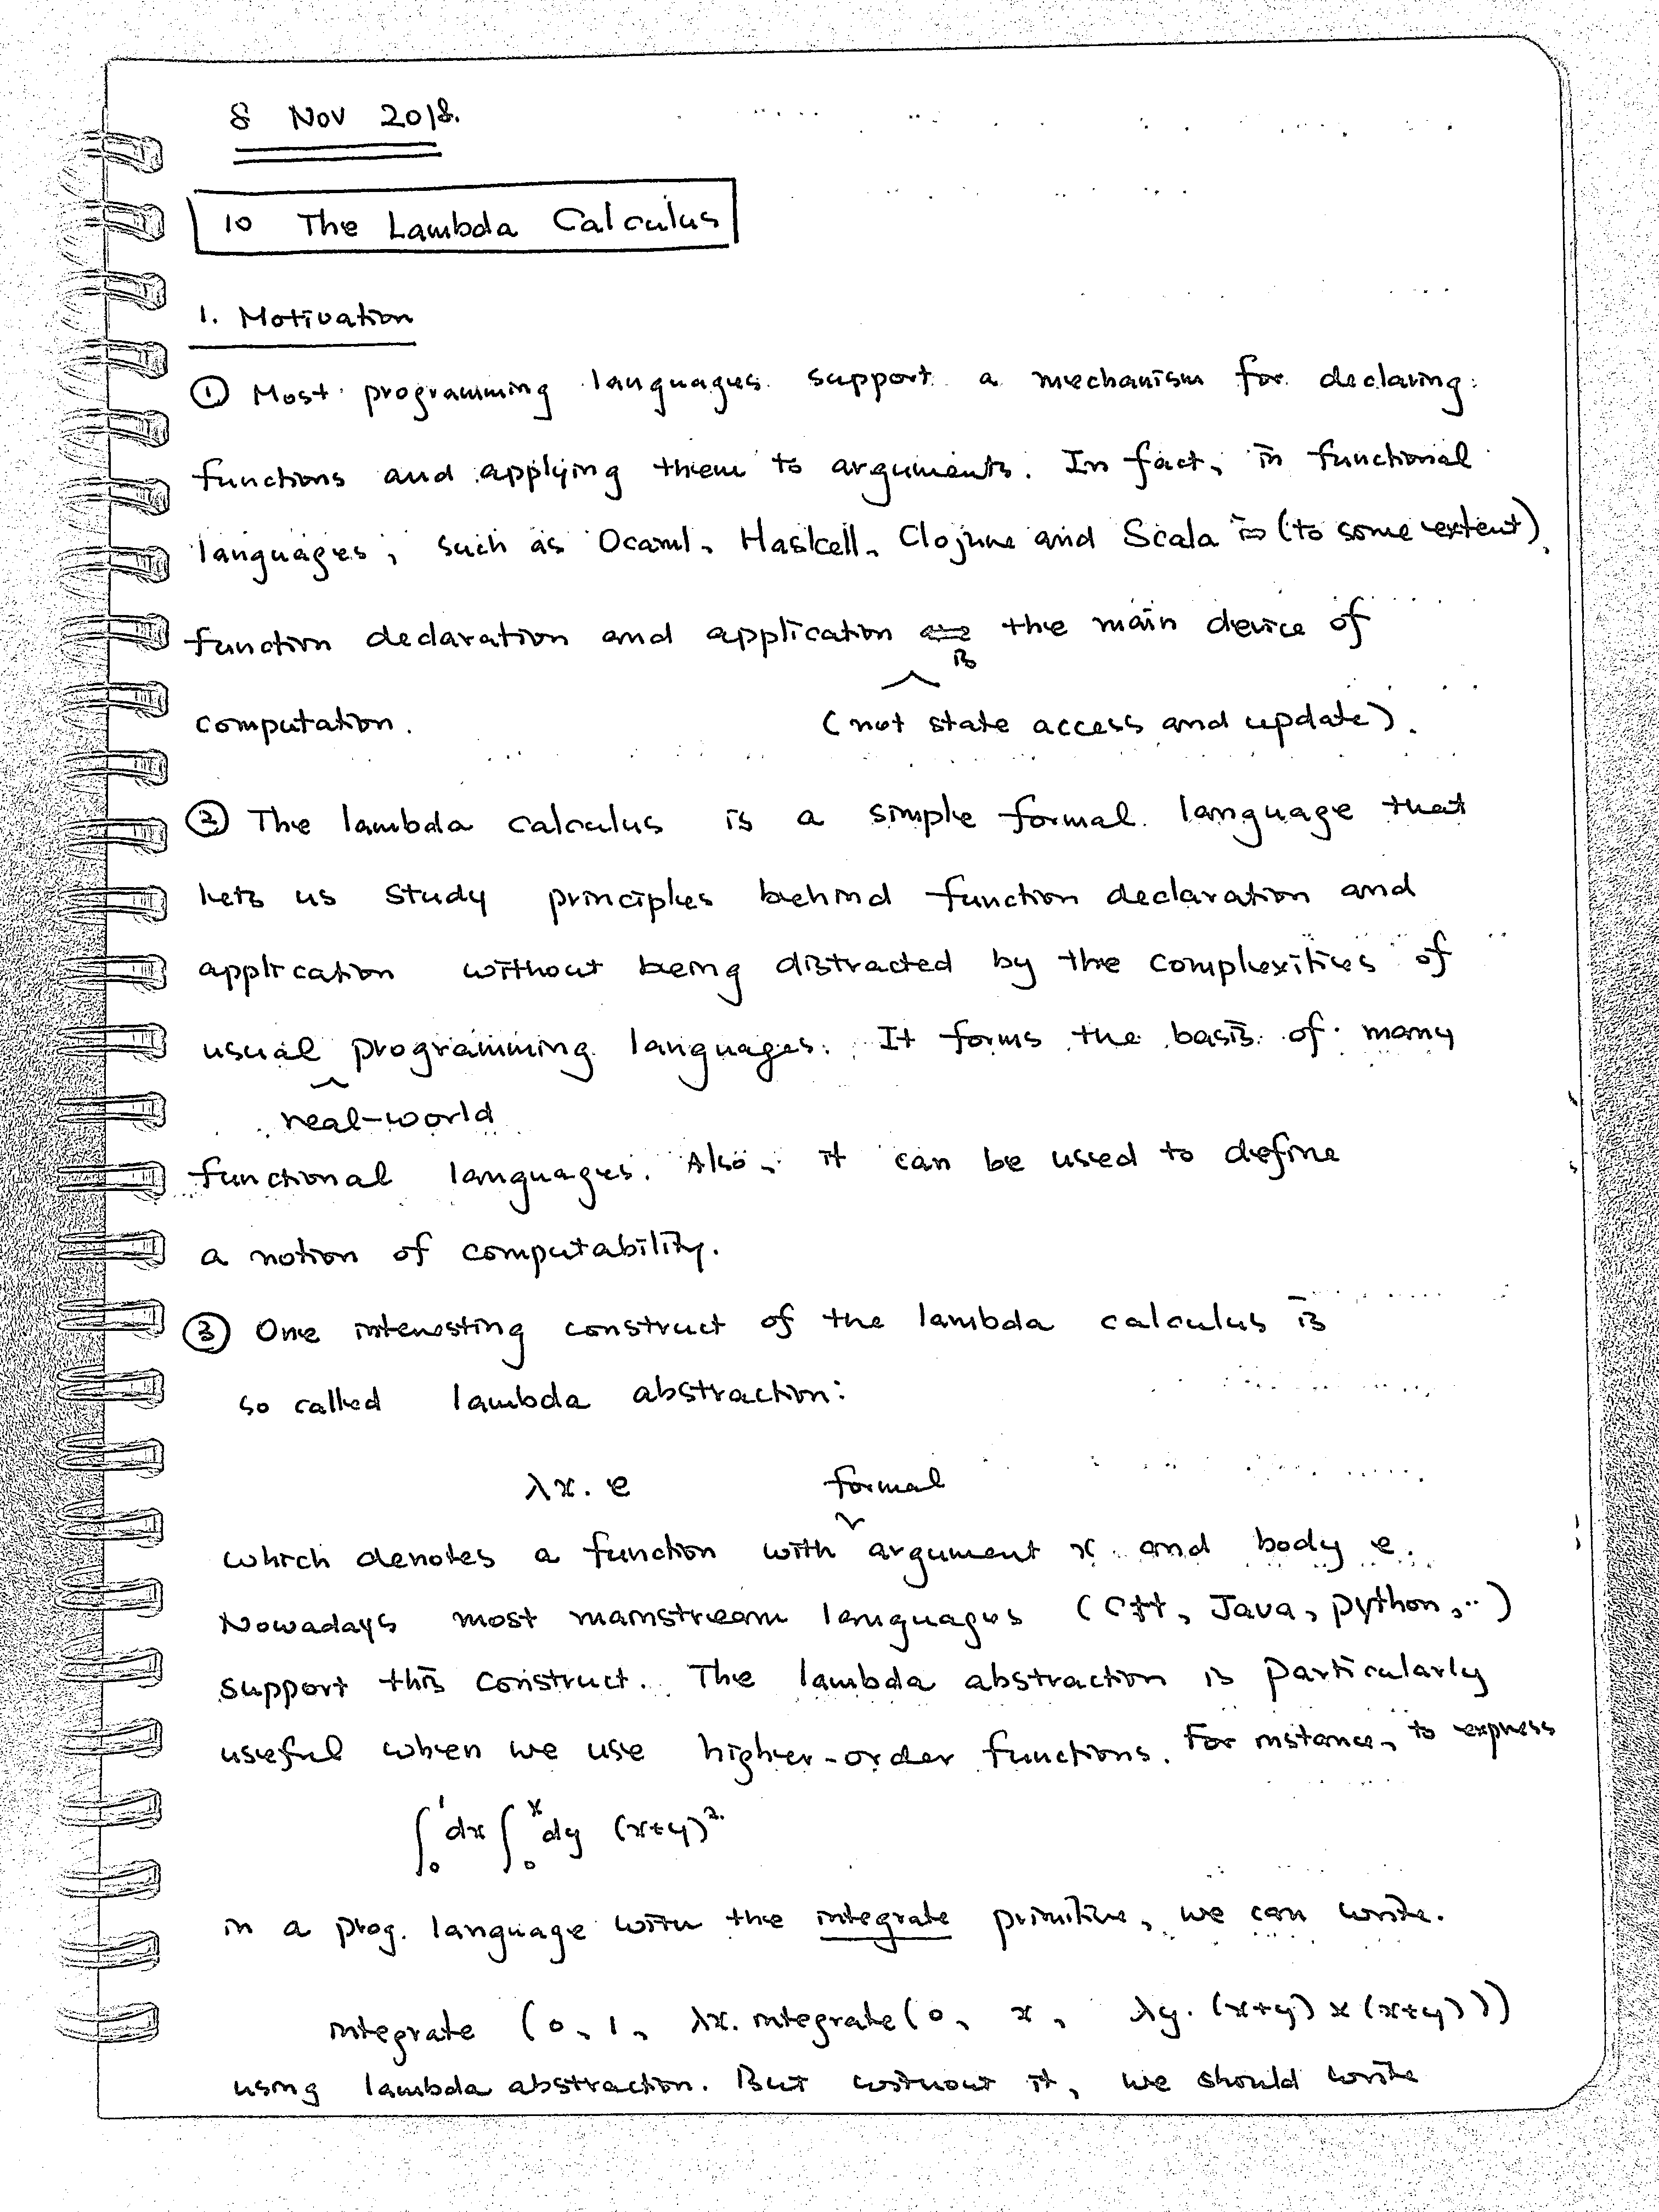 8 Nov 2018.
10 The Lambda Calculus
1. Motivation
① Most programming languages support a mechanism for declaring
functions and applying them to arguments. In fact, in functional
languages, such as Ocaml, Haskell, Clojure and Scala (to some extent),
function declaration and application is the main device of
computation. (not state access and update).
② The lambda calculus is a simple formal language that
lets us study principles behind function declaration and
application without being distracted by the complexities of
usual programming languages. It forms the basis of many
real-world
functional languages. Also, it can be used to define
a notion of computability.
③ One interesting construct of the lambda calculus is
so called lambda abstraction:
λx. e formal
which denotes a function with argument x and body e.
Nowadays most mainstream languages (C++, Java, python, ..)
support this construct. The lambda abstraction is particularly
useful when we use higher-order functions. For instance, to express
∫₀¹ dx ∫₀ˣ dy (x+y)²
in a prog. language with the integrate primitive, we can write.
integrate (0, 1, λx. integrate (0, x, λy. (x+y) × (x+y)))
using lambda abstraction. But without it, we should write